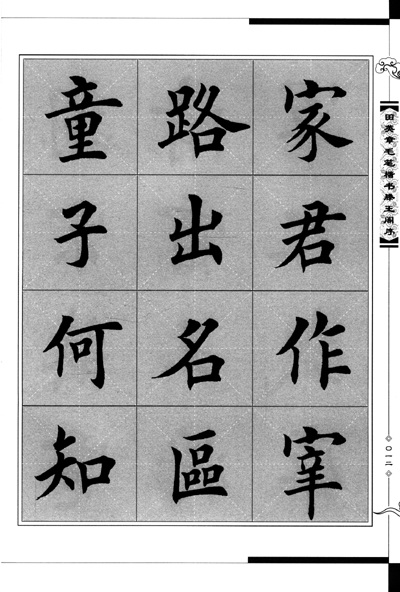 家君作宰
路出名區
童子何知
【田英章毛笔楷书滕王阁序】
〇一二